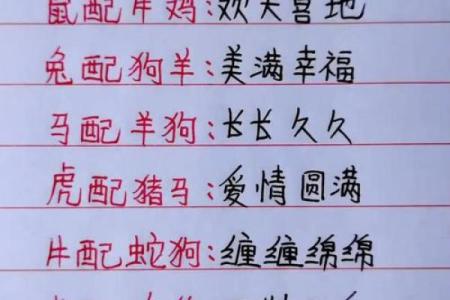 鼠配牛鸡:欢天喜地
兔配狗羊:美满幸福
马配羊狗:长长久久
虎配猪马:爱情圆满
牛配蛇狗:缠缠绵绵